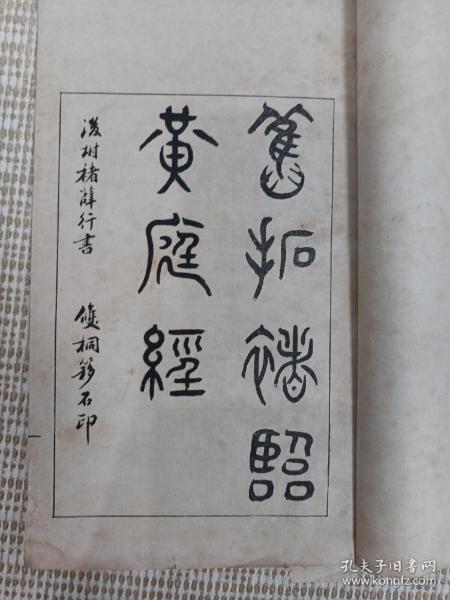 舊拓褚臨
黃庭經
後坿褚薛行書
雙桐簃石印
孔夫子旧书网
www.kongfz.com